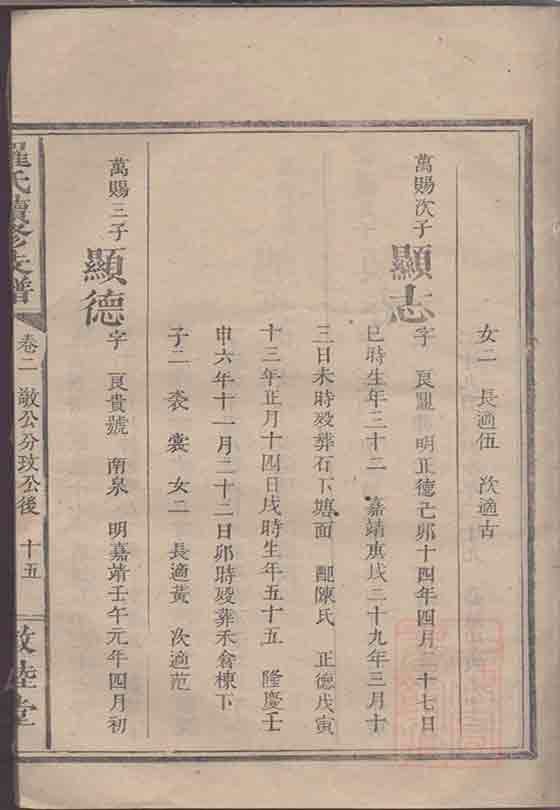 女二 長適伍 次適古
萬賜次子 顯志 字 良 明正德己卯十四年四月二十七日
巳時生年三十二 嘉靖庚戌三十九年三月十
三日未時歿葬石下塘面 配陳氏 正德戊寅
十三年正月十四日戌時生年五十五 隆慶壬
申六年十一月二十二日卯時歿葬禾倉棟下
子二 裘 女二 長適黃 次適范
萬賜三子 顯德 字 良貴號 南泉 明嘉靖壬午元年四月初
羅氏續修支譜 卷二 敬公分玟公後 十五 敦睦堂